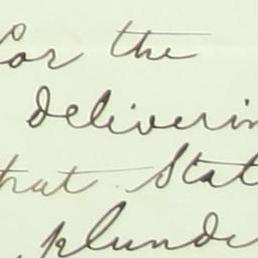 for the
deliverin
that Stat
plunde